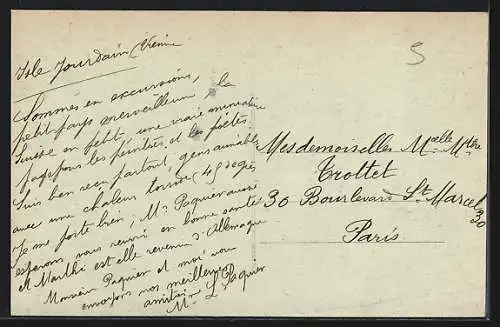 Isle Jourdain (Vienne
Sommes en excursions,
petit pays merveilleux, la
Suisse en petit, une vraie
pays pour les peintres et les poëtes
suis bien reçu partout, gens aimables
avec une chaleur torride (45 degrés
Je me porte bien, Mr Paquier aussi
espérons vous revoir en bonne santé
et Marthe est elle revenue d'Allemagne
Monsieur Paquier et moi vous
envoyons nos meilleures
amitiés
Mr L Paquier
5
Mesdemoiselles Mcelle
Trottet
30 Bourlevard St Marcel
30
Paris